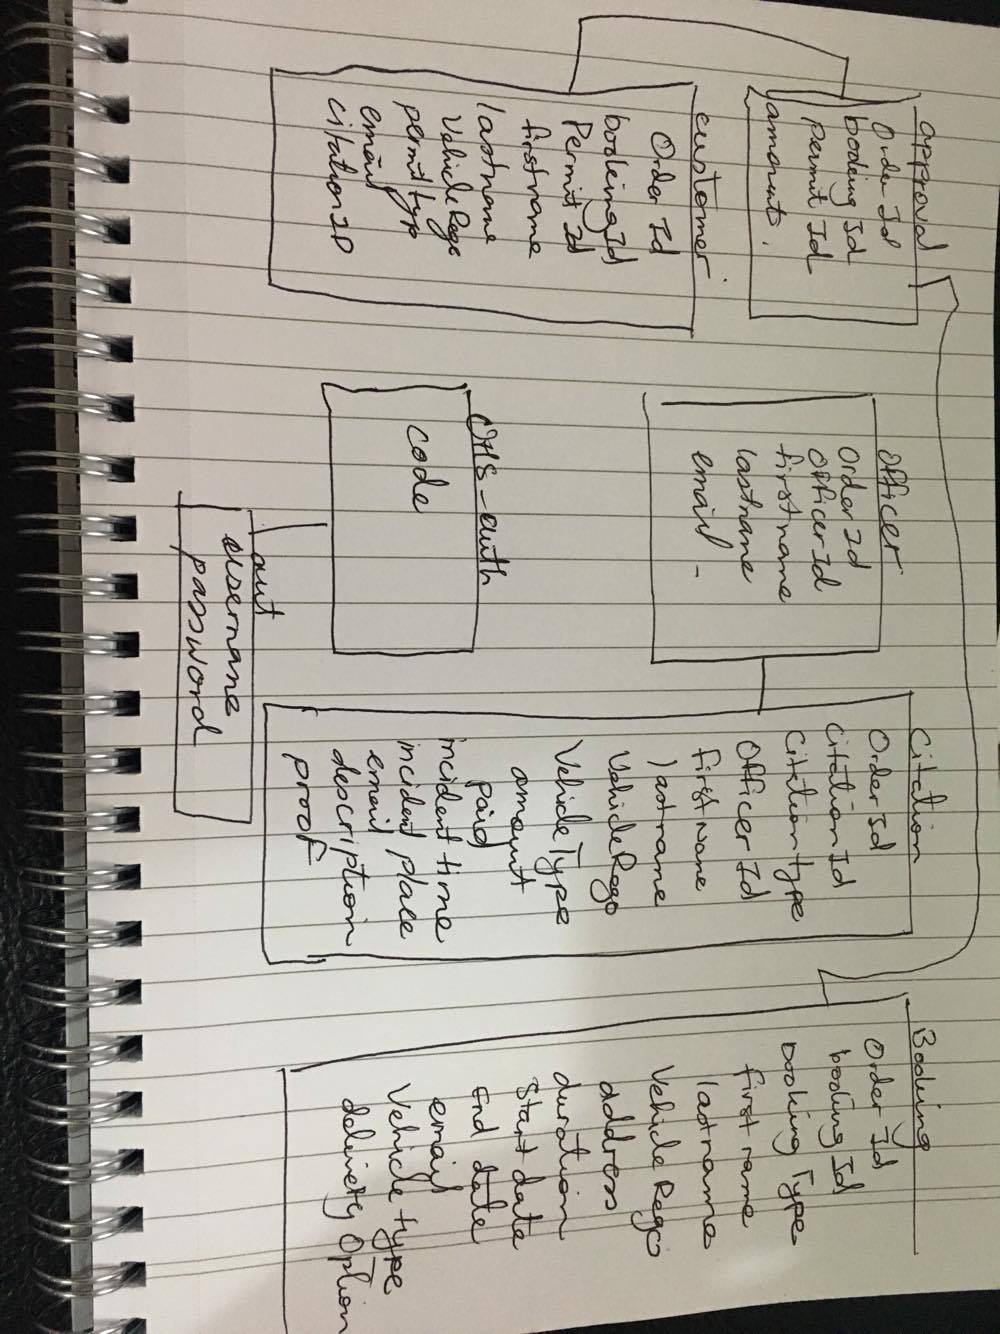 approval
Order Id
booking Id
permit Id
amount.
customer
Order Id
booking Id
Permit Id
firstname
lastname
Vehicle Rego
permit typ
email
citation ID
Officer
Order Id
Officer Id
firstname
lastname
email
OHS-auth
code
aut
username
password
Citation
Order Id
Citation Id
Citiontype
Officer Id
first name
lastname
Vehicle Rego
Vehicle Type
amount
paid
incident time
incident place
email
description
proof
Booking
Order Id
booking Id
booking Type
first name
lastname
Vehicle Rego
address
duration
Start date
End date
email
Vehicle type
delivery Option